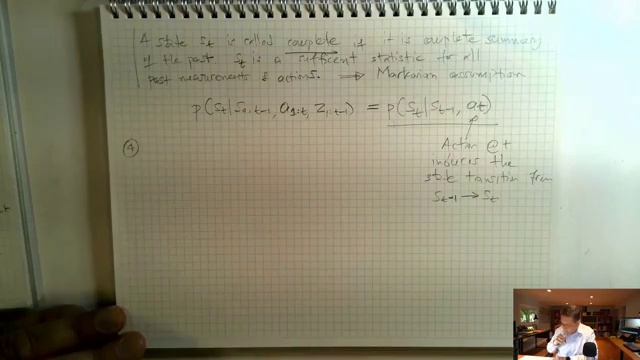 A state St is called complete if it is complete summary
of the past St is a sufficient statistic for all
past measurements & actions. ⟹ Markovian assumption
p(St|S0:t-1, a1:t, Z1:t-1) = p(St|St-1, at)
Action @ t
induces the
state transition from
St-1 → St
④